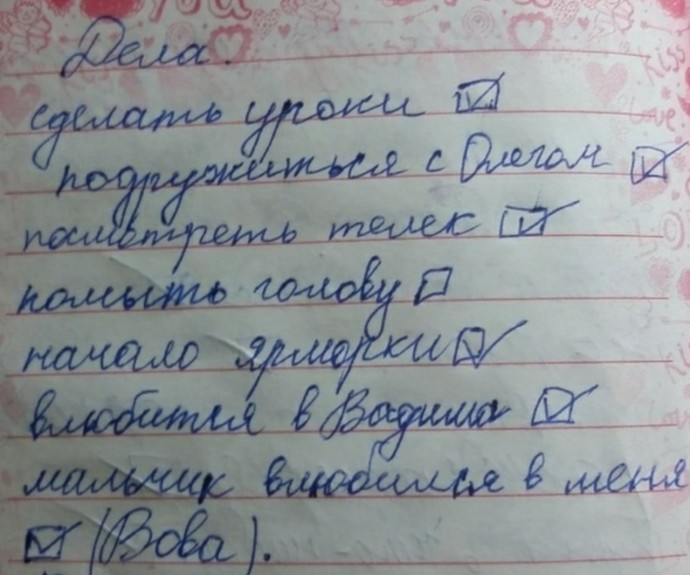 Дела.
сделать уроки ☑
подружиться с Олегом ☑
посмотреть телек ☑
помыть голову ☐
начало ярмарки ☑
влюбится в Вадима ☑
мальчик влюбился в меня
☑ (Вова).
Kiss
Love